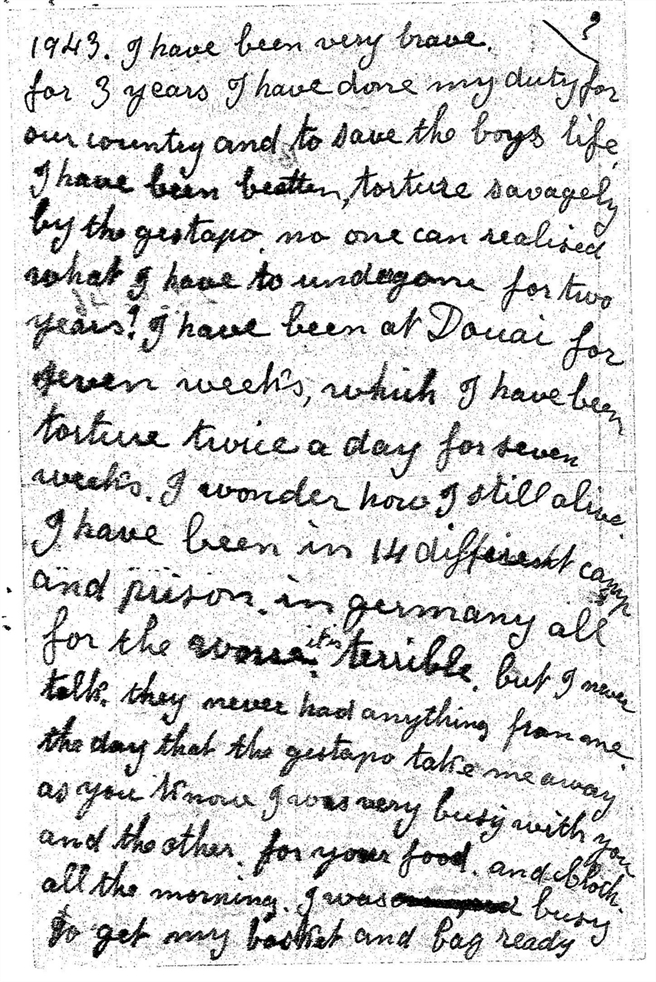 ?
1943. I have been very brave.
for 3 years I have done my duty for
our country and to save the boys life.
I have been beatten, torture savagely
by the gestapo. no one can realised
what I have to undegone for two
years! I have been at Douai for
seven weeks, which I have been
torture twice a day for seven
weeks. I wonder how I still alive.
I have been in 14 different camp
and prison. in germany all
for the worse. its terrible. but I never
talk. they never had anything from me.
the day that the gestapo take me away
as you know I was very busy with you
and the other. for your food. and cloth.
all the morning. I was busy
to get my basket and bag ready